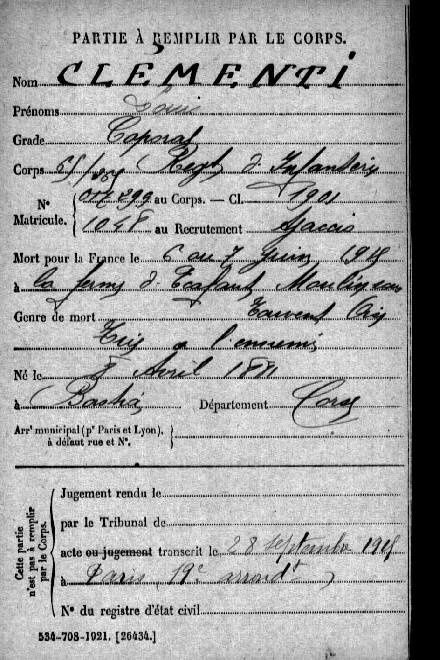 PARTIE À REMPLIR PAR LE CORPS.
Nom CLÉMENTI
Prénoms Louis
Grade Caporal
Corps Regt d'Infanterie
Nº
Matricule.
au Corps. — Cl. 1901
1048 au Recrutement Ajaccio
Mort pour la France le 6 au 7 juin 1915
à la ferme de Moulin sous
Genre de mort
Tué à l'ennemi
Né le Avril 1881
à Bastia Département Corse
Arrt municipal (pr Paris et Lyon),
à défaut rue et Nº.
Cette partie
n'est pas à remplir
par le Corps.
Jugement rendu le
par le Tribunal de
acte ou jugement transcrit le 28 septembre 1915
à Paris 19e arrondt
Nº du registre d'état civil
534-708-1921. [26434.]